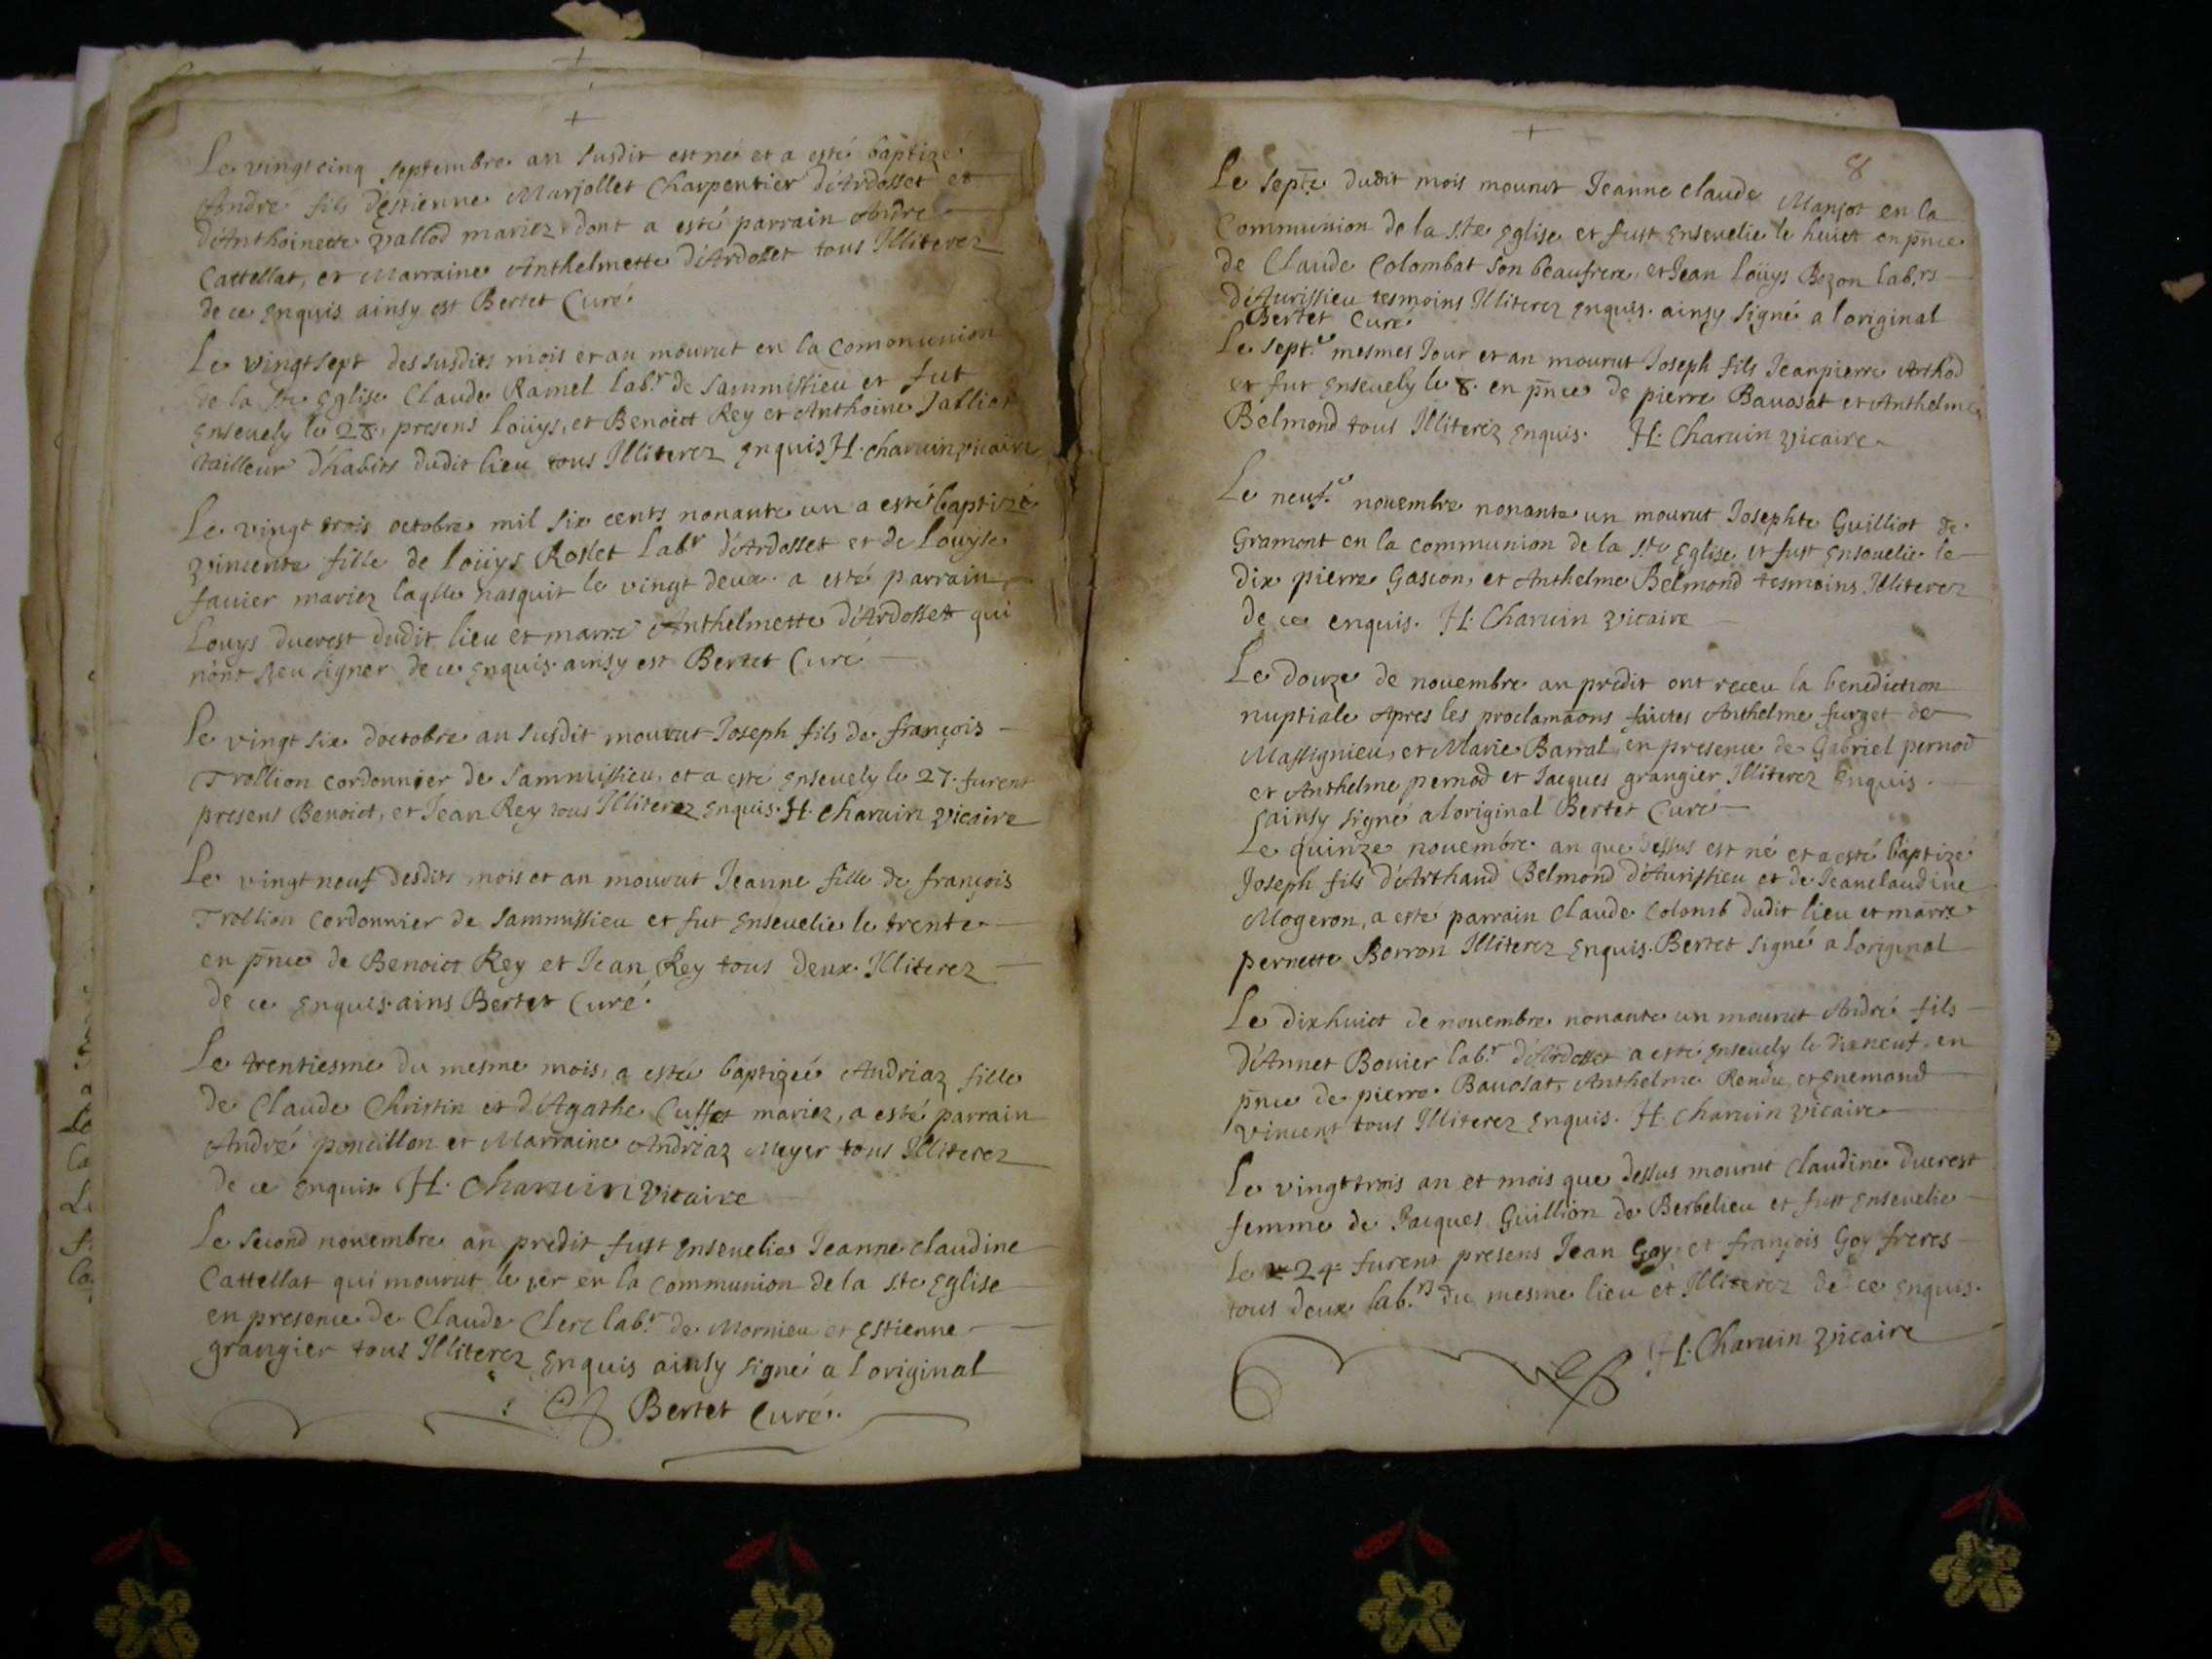 Le vingt cinq septembre an susdit est né et a esté baptizé
André fils d'estienne Marjollet Charpentier d'Ardosset et
d'Anthoinette vallod mariez dont a esté parrain André
Cattellat, et Marraine Anthelmette d'Ardosset tous Illiterez
de ce enquis ainsy est Bertet Curé
Le vingt sept des susdits mois et an mourut en la Comonunion
de la ste eglise Claude Ramel labr de Sammissieu et fut
ensevely le 28. presens Loüys, et Benoict Rey et Anthoine Jalliot
tailleur d'habits dudit lieu tous Illiterez enquis H. charuin vicaire
Le vingt trois octobre mil six cents nonante un a esté baptizé
vincente fille de loüys Rosset labr d'Ardosset et de Louyse
favier mariez laqlle nasquit le vingt deux a esté parrain
Louys ducrest dudit lieu et marre Anthelmette d'Ardosset qui
n'ont sceu signer de ce enquis ainsy est Bertet Curé
Le vingt six doctobre an susdit mourut Joseph fils de françois
Trollion cordonnier de Sammissieu, et a esté ensevely le 27. furent
presens Benoict, et Jean Rey tous Illiterez enquis. H. Charuin vicaire
Le vingt neuf desdits mois et an mourut Jeanne fille de françois
Trollion cordonnier de Sammissieu et fut ensevelie le trente
en pnce de Benoict Rey et Jean Rey tous deux Illiterez
de ce enquis. ains Bertet Curé.
Le trentiesme du mesme mois, a esté baptizeé Andriaz fille
de Claude Christin et d'Agathe Cuffet mariez, a esté parrain
André poncillon et Marraine Andriaz Meyer tous Illiterez
de ce enquis H. Charuin vicaire
Le second novembre an predit fust ensevelie Jeanne claudine
Cattellat qui mourut le 1er en la Communion de la ste Eglise
en presence de Claude Clerc labr de Mornieu et Estienne
grangier tous Illiterez enquis ainsy signé a l original
Bertet Curé.
8
Le septe dudit mois mourut Jeanne claude Manjot en la
Communion de la ste eglise et fust ensevelie le huict en pnce
de Claude Colombat son beaufrere, et Jean loüys Bozon labrs
d'Aurissieu tesmoins Illiterez enquis. ainsy signé a l original
Bertet Curé
Le septe mesmes Jour et an mourut Joseph fils Jeanpierre Arthod
et fut ensevely le 8. en pnce de pierre Bavosat et Anthelme
Belmond tous Illiterez enquis. H. Charuin vicaire
Le neufe novembre nonante un mourut Josephte Guilliot de
Gramont en la communion de la ste Eglise et fust ensevelie le
dix pierre Gascon, et Anthelme Belmond tesmoins Illiterez
de ce enquis. H. Charuin vicaire
Le douze de novembre an predit ont receu la benediction
nuptiale apres les proclamaons faictes Anthelme furget de
Massignieu, et Marie Barral en presence de Gabriel pernod
et Anthelme pernod et Jacques grangier Illiterez enquis.
ainsy signé a loriginal Bertet Curé
Le quinze novembre an que dessus est né et a esté baptizé
Joseph fils d'Arthaud Belmond d'Aurissieu et de Jeanclaudine
Mogeron, a esté parrain Claude Colomb dudit lieu et marre
pernette Borron Illiterez enquis. Bertet signé a loriginal
Le dixhuict de novembre nonante un mourut André fils
d'Annet Bouier labr d'Ardosset a esté ensevely le dixneuf, en
pnce de pierre Bavosat, Anthelme Rendu, et Enemond
vincent tous Illiterez enquis. H. Charuin vicaire
Le vingttrois an et mois que dessus mourut claudine ducrest
femme de Jacques Guillion de Berbelieu et fust ensevelie
Le 24 furent presens Jean Goy et françois Goy freres
tous deux labrs du mesme lieu et Illiterez de ce enquis.
H. Charuin vicaire